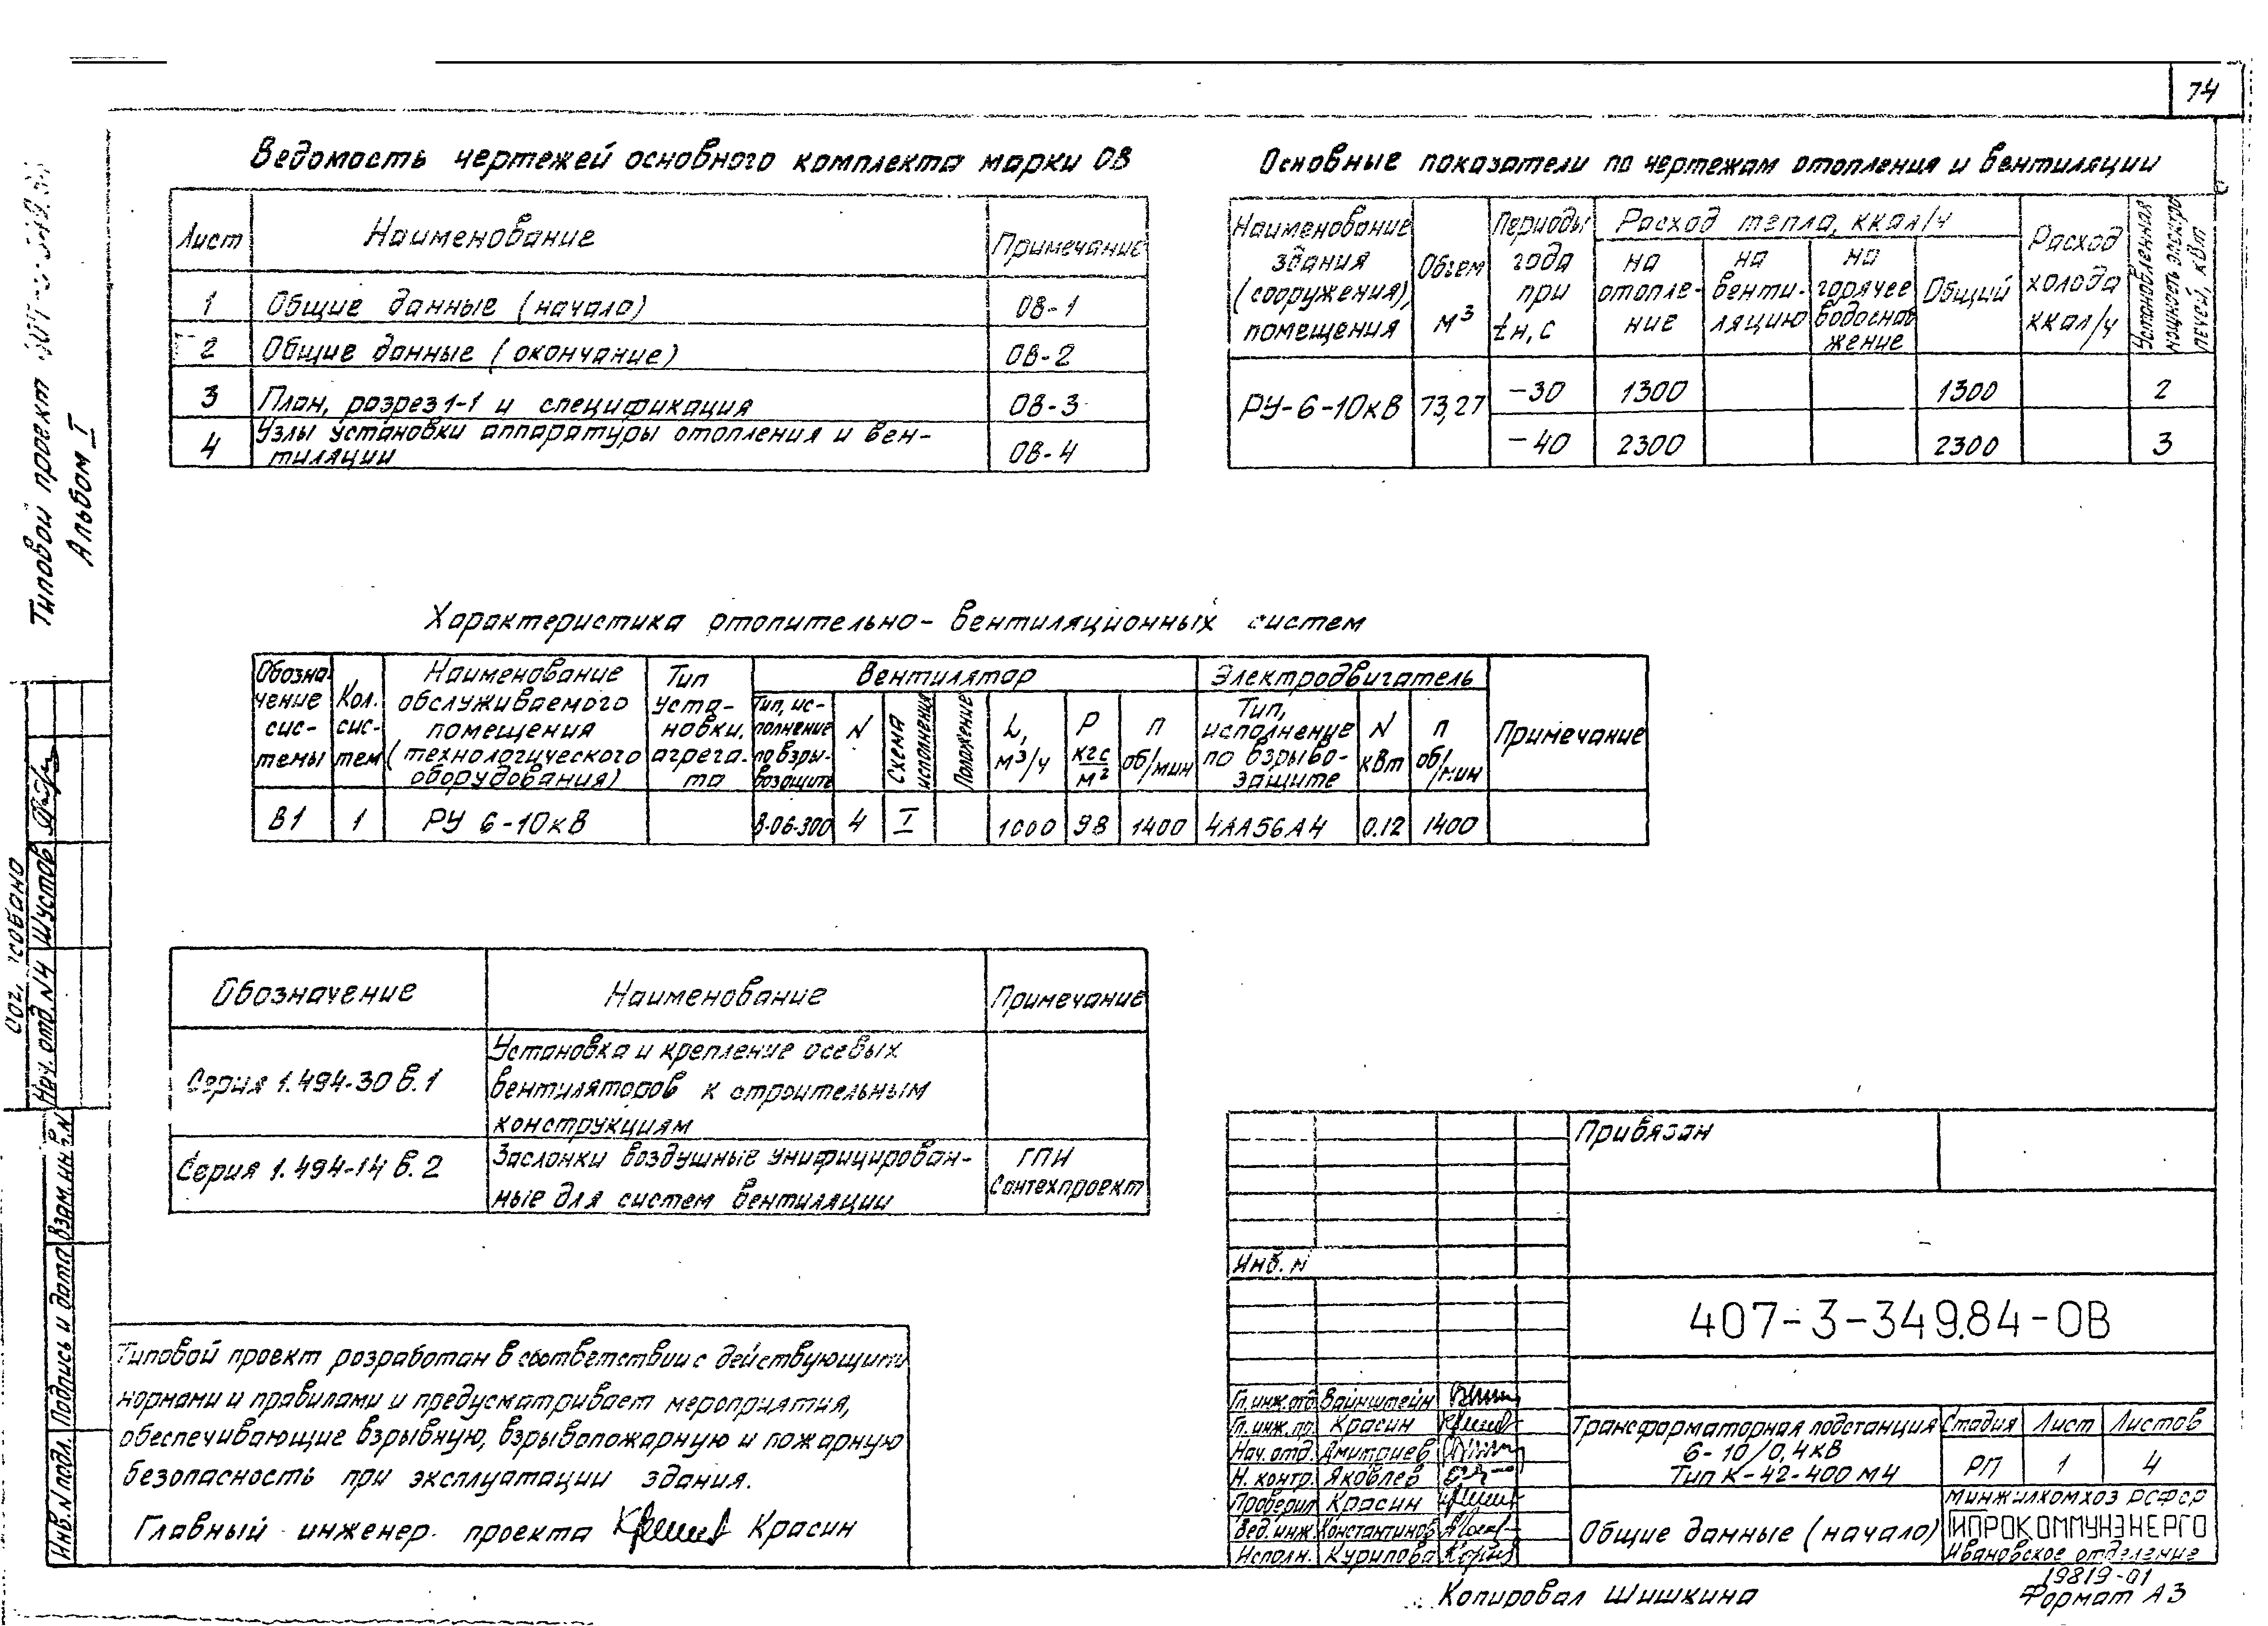 74
Ведомость чертежей основного комплекта марки ОВ
Лист Наименование Примечание
1 Общие данные (начало) ОВ-1
2 Общие данные (окончание) ОВ-2
3 План, разрез 1-1 и спецификация ОВ-3
4 Узлы установки аппаратуры отопления и вен-
тиляции ОВ-4
Основные показатели по чертежам отопления и вентиляции
Наименование
здания
(сооружения),
помещения
Объем
м³
Периоды
года
при
tн, с
Расход тепла, ккал/ч
на
отопле-
ние
на
венти-
ляцию
на
горячее
водоснаб
жение
Общий
Расход
холода
ккал/ч
Установленная
мощность электро
печей, кВт
РУ-6-10кВ 73,27 -30 1300 1300 2
-40 2300 2300 3
Характеристика отопительно-вентиляционных систем
Обозна-
чение
сис-
темы
Кол.
сис-
тем
Наименование
обслуживаемого
помещения
(технологического
оборудования)
Тип
уста-
новки,
агрега-
та
Вентилятор
Тип, ис-
полнение
по взры-
возащите
N
Схема
исполнения
Положение
L,
м³/ч
Р
кгс
м²
п
об/мин
Электродвигатель
Тип,
исполнение
по взрыво-
защите
N
кВт
п
об/мин
Примечание
В1 1 РУ 6-10кВ В-06-300 4 I 1000 98 1400 4АА56А4 0.12 1400
Обозначение Наименование Примечание
Серия 1.494-30 в.1
Установка и крепление осевых
вентиляторов к строительным
конструкциям
Серия 1.494-14 в.2
Заслонки воздушные унифицирован-
ные для систем вентиляции
ГПИ
Сантехпроект
Типовой проект разработан в соответствии с действующими
нормами и правилами и предусматривает мероприятия,
обеспечивающие взрывную, взрывопожарную и пожарную
безопасность при эксплуатации здания.
Главный инженер проекта Красин
Привязан
Инв. N
407-3-349.84-ОВ
Гл. инж. отд. Вайнштейн
Гл. инж. пр. Красин
Нач. отд. Дмитриев
Н. контр. Яковлев
Проверил Красин
Вед. инж. Константинов
Исполн. Курилова
Трансформаторная подстанция
6-10/0,4кВ
Тип К-42-400 М4
Стадия Лист Листов
РП 1 4
Общие данные (начало)
Минжилкомхоз РСФСР
ГИПРОКОММУНЭНЕРГО
Ивановское отделение
19819-01
Копировал Шишкина
Формат А3
Типовой проект
Альбом I
Нач. отд. N4 Шустов
Взам. инв. N
Подпись и дата
Инв. N подл.